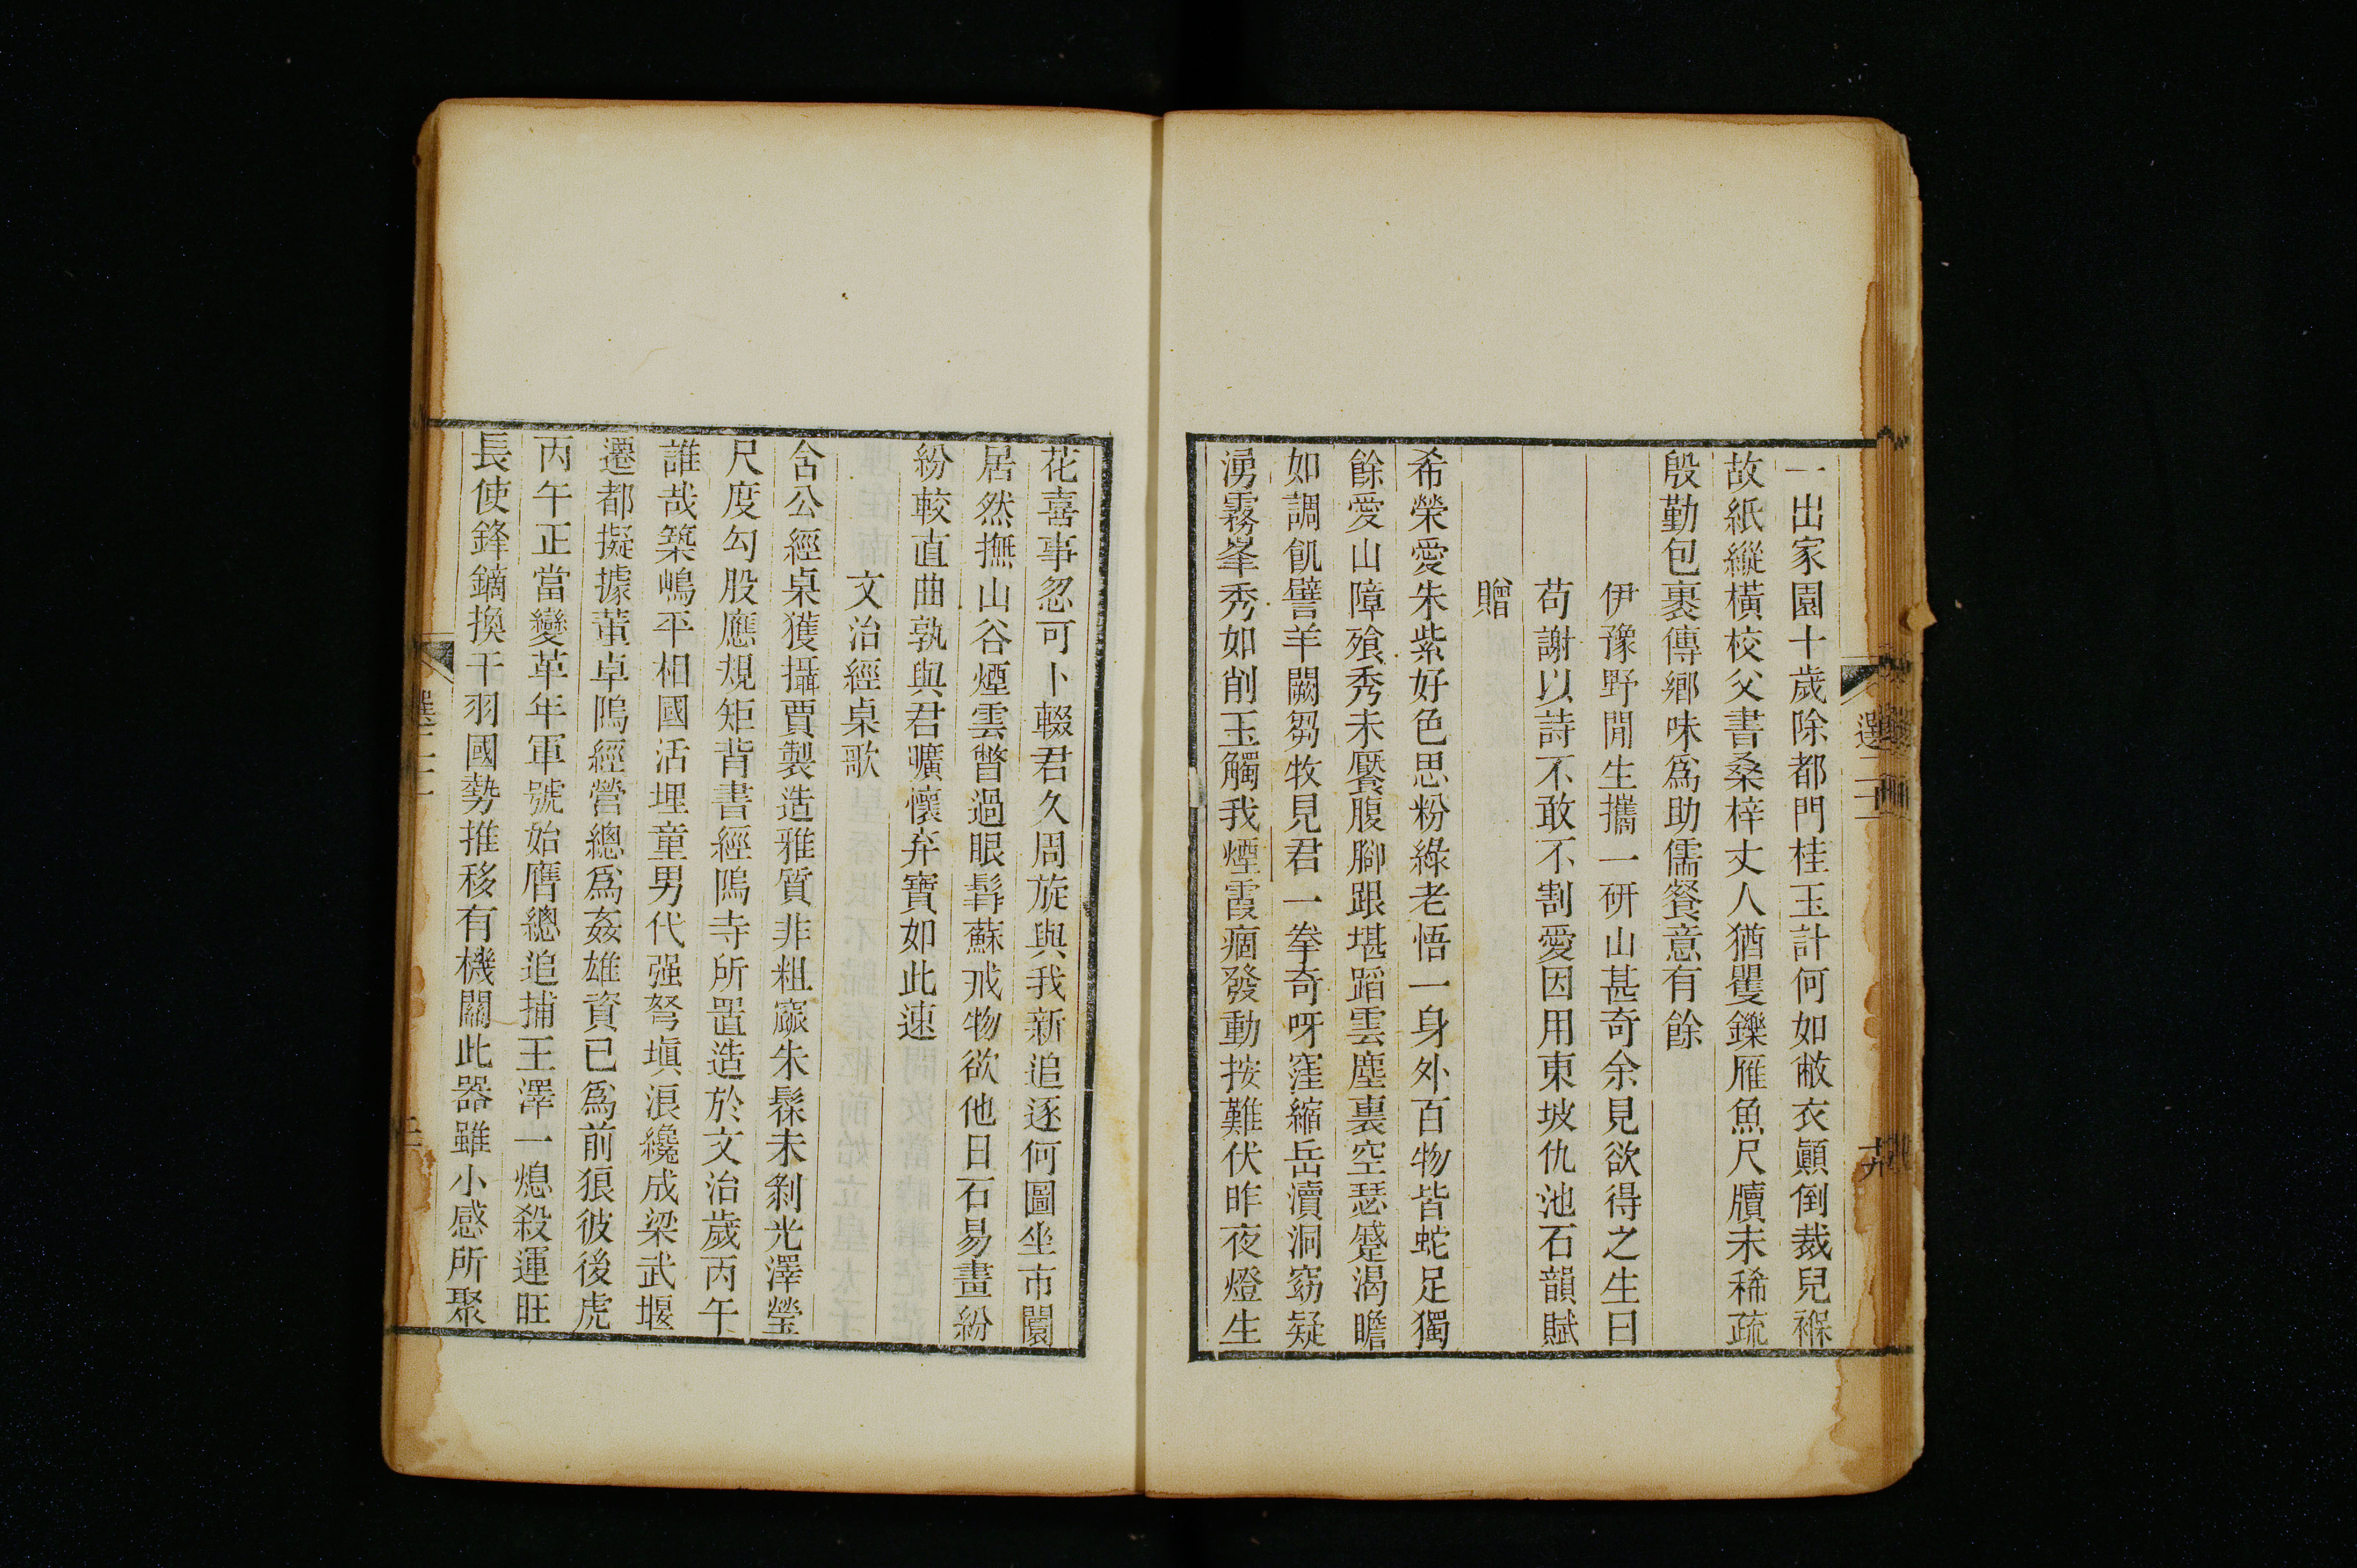 一出家園十歲除都門桂玉計何如敝衣顚倒裁兒褓
故紙縱橫校父書桑梓丈人猶矍鑠雁魚尺牘未稀疏
殷勤包裹傳鄕味爲助儒餐意有餘
伊豫野閒生攜一研山甚奇余見欲得之生曰
苟謝以詩不敢不割愛因用東坡仇池石韻賦
贈
希榮愛朱紫好色思粉綠老悟一身外百物皆蛇足獨
餘愛山障飱秀未饜腹脚跟堪蹈雲塵裏空瑟蹙渴瞻
如調飢譬羊闕芻牧見君一拳奇呀窪縮岳瀆洞窈疑
湧霧峯秀如削玉觸我煙霞痼發動按難伏昨夜燈生
花喜事忽可卜輟君久周旋與我新追逐何圖坐市闤
居然撫山谷煙雲瞥過眼髯蘇戒物欲他日石易畫紛
紛較直曲孰與君曠懷弃寶如此速
文治經桌歌
含公經桌獲攝賈製造雅質非粗窳朱髹未剝光澤瑩
尺度勾股應規矩背書經隝寺所置造於文治歲丙午
誰哉築嶋平相國活埋童男代强弩塡浪纔成梁武堰
遷都擬據董卓隖經營總爲姦雄資已爲前狼彼後虎
丙午正當變革年軍號始膺總追捕王澤一熄殺運旺
長使鋒鏑換干羽國勢推移有機關此器雖小感所聚